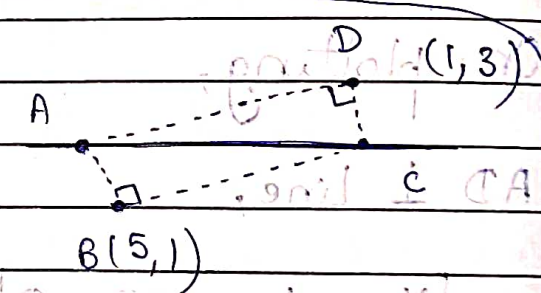 D
(1, 3)
A
C
B(5, 1)